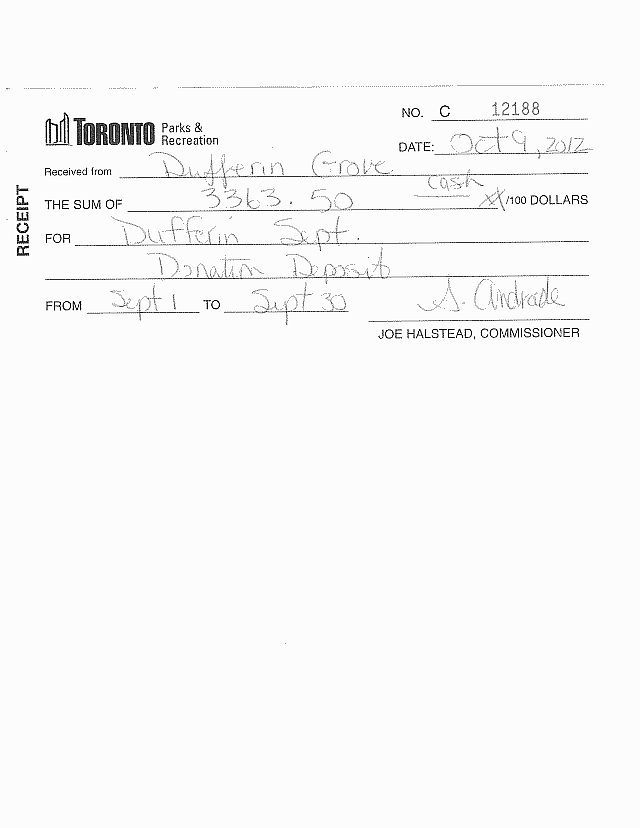 NO. C 12188
TORONTO Parks & Recreation
DATE: Oct 9, 2012
Received from Dufferin Grove
RECEIPT
THE SUM OF 3363.50 cash XX/100 DOLLARS
FOR Dufferin Sept.
Donation Deposit
FROM Sept 1 TO Sept 30 S. Andrade
JOE HALSTEAD, COMMISSIONER